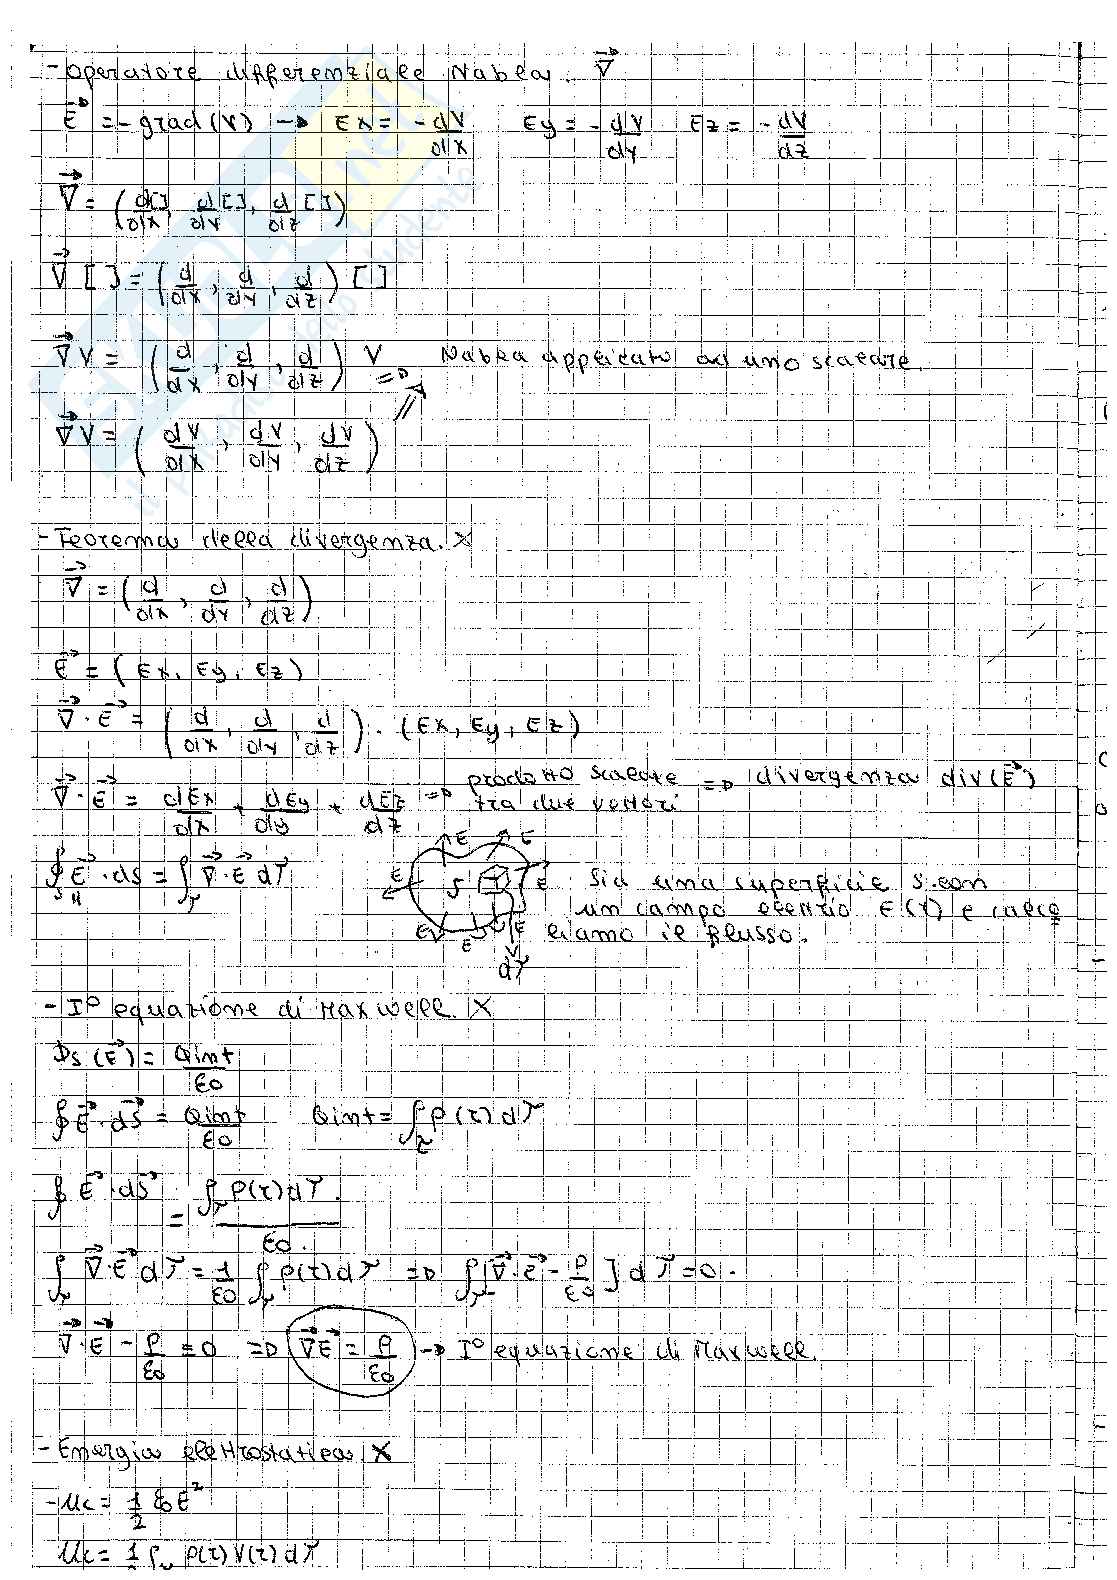 - Operatore differenziale Nabla. ∇⃗
E⃗ = - grad(V) → Ex = -dV/dx Ey = -dV/dy Ez = -dV/dz
∇⃗ = (d[]/dx, d/dy[], d/dz[])
∇⃗[] = (d/dx, d/dy, d/dz)[]
∇⃗V = (d/dx, d/dy, d/dz) V Nabla applicato ad uno scalare.
⇒ ⇒
∇⃗V = (dV/dx, dV/dy, dV/dz)
- Teorema della divergenza. X
∇⃗ = (d/dx, d/dy, d/dz)
E⃗ = (Ex, Ey, Ez)
∇⃗·E⃗ = (d/dx, d/dy, d/dz)·(Ex, Ey, Ez)
∇⃗·E⃗ = dEx/dx + dEy/dy + dEz/dz ⇒ prodotto scalare tra due vettori ⇒ divergenza div(E⃗)
∮ₛ E⃗·ds = ∫τ ∇⃗·E⃗ dτ
E E E E E E E S dτ
Sia una superficie S con
un campo elettrico E(r) e calco
liamo il flusso.
- I° equazione di Maxwell. X
Φs(E⃗) = Qint/ε0
∮E⃗·dS⃗ = Qint/ε0 Qint = ∫τ ρ(r)dτ
∮E⃗·dS⃗ = ∫τ ρ(r)dτ/ε0.
∫τ ∇⃗·E⃗ dτ = 1/ε0 ∫τ ρ(r)dτ ⇒ ∫τ[∇⃗·E⃗ - ρ/ε0] dτ = 0.
∇⃗·E⃗ - ρ/ε0 = 0 ⇒ ∇⃗E⃗ = ρ/ε0 → I° equazione di Maxwell.
- Energia elettrostatica X
- Uc = 1/2 ε0E²
Uc = 1/2 ∫τ ρ(r)V(r)dτ